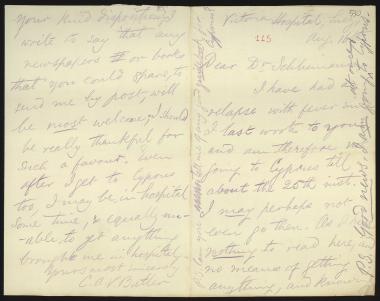 Victoria Hospital, Suez
115
Aug. 16
Dear Dr Schliemann
I have had a
relapse with fever since
I last wrote to you
and am therefore not
going to Cyprus til
about the 20th inst.
I may perhaps not
even go then. As I have
nothing to read here, and
no means of getting
anything, and knowing
your kind disposition, I
write to say that any
newspapers or books
that you could spare, to
send me by post, will
be most welcome; I should
be really thankful for
such a favour. Even
after I get to Cyprus
too, I may be in hospital
some time, & equally un-
-able, to get anything
brought me in hospital
Yours most sincerely
C. A. V. Butler
P.S. Good news. I am going to Cyprus
at once